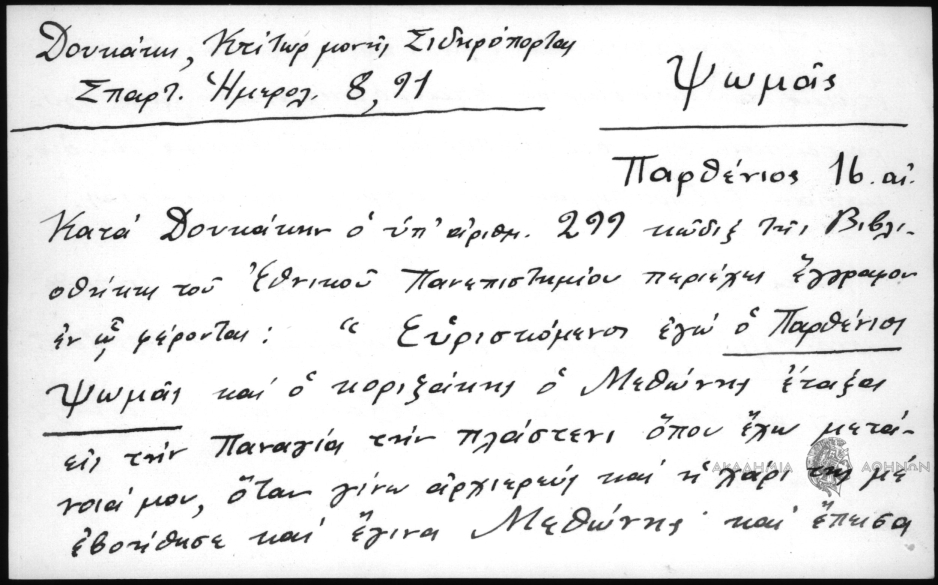 Δουκάκη, Κτίτωρ μονῆς Σιδηρόπορτας
Σπαρτ. Ἡμερολ. 8, 91
Ψωμᾶς
Παρθένιος 16. αἰ.
Κατά Δουκάκην ὁ ὑπ' ἀριθμ. 299 κῶδιξ τῆς Βιβλι-
οθήκης τοῦ Ἐθνικοῦ Πανεπιστημίου περιέχει ἔγγραφον
ἐν ᾧ φέρονται: "Εὑρισκόμενος ἐγώ ὁ Παρθένιος
Ψωμᾶς καί ὁ κοριξάκης ὁ Μεθώνης ἔταξα
εἰς τήν Παναγία τήν πλάστενι ὅπου ἔχω μετά-
νοιά μου, ὅταν γίνω ἀρχιερεύς καί ἡ χάρι της μέ
ἐβοήθησε καί ἔγινα Μεθώνης καί ἔπεισα
ΑΚΑΔΗΜΙΑ ΑΘΗΝΩΝ